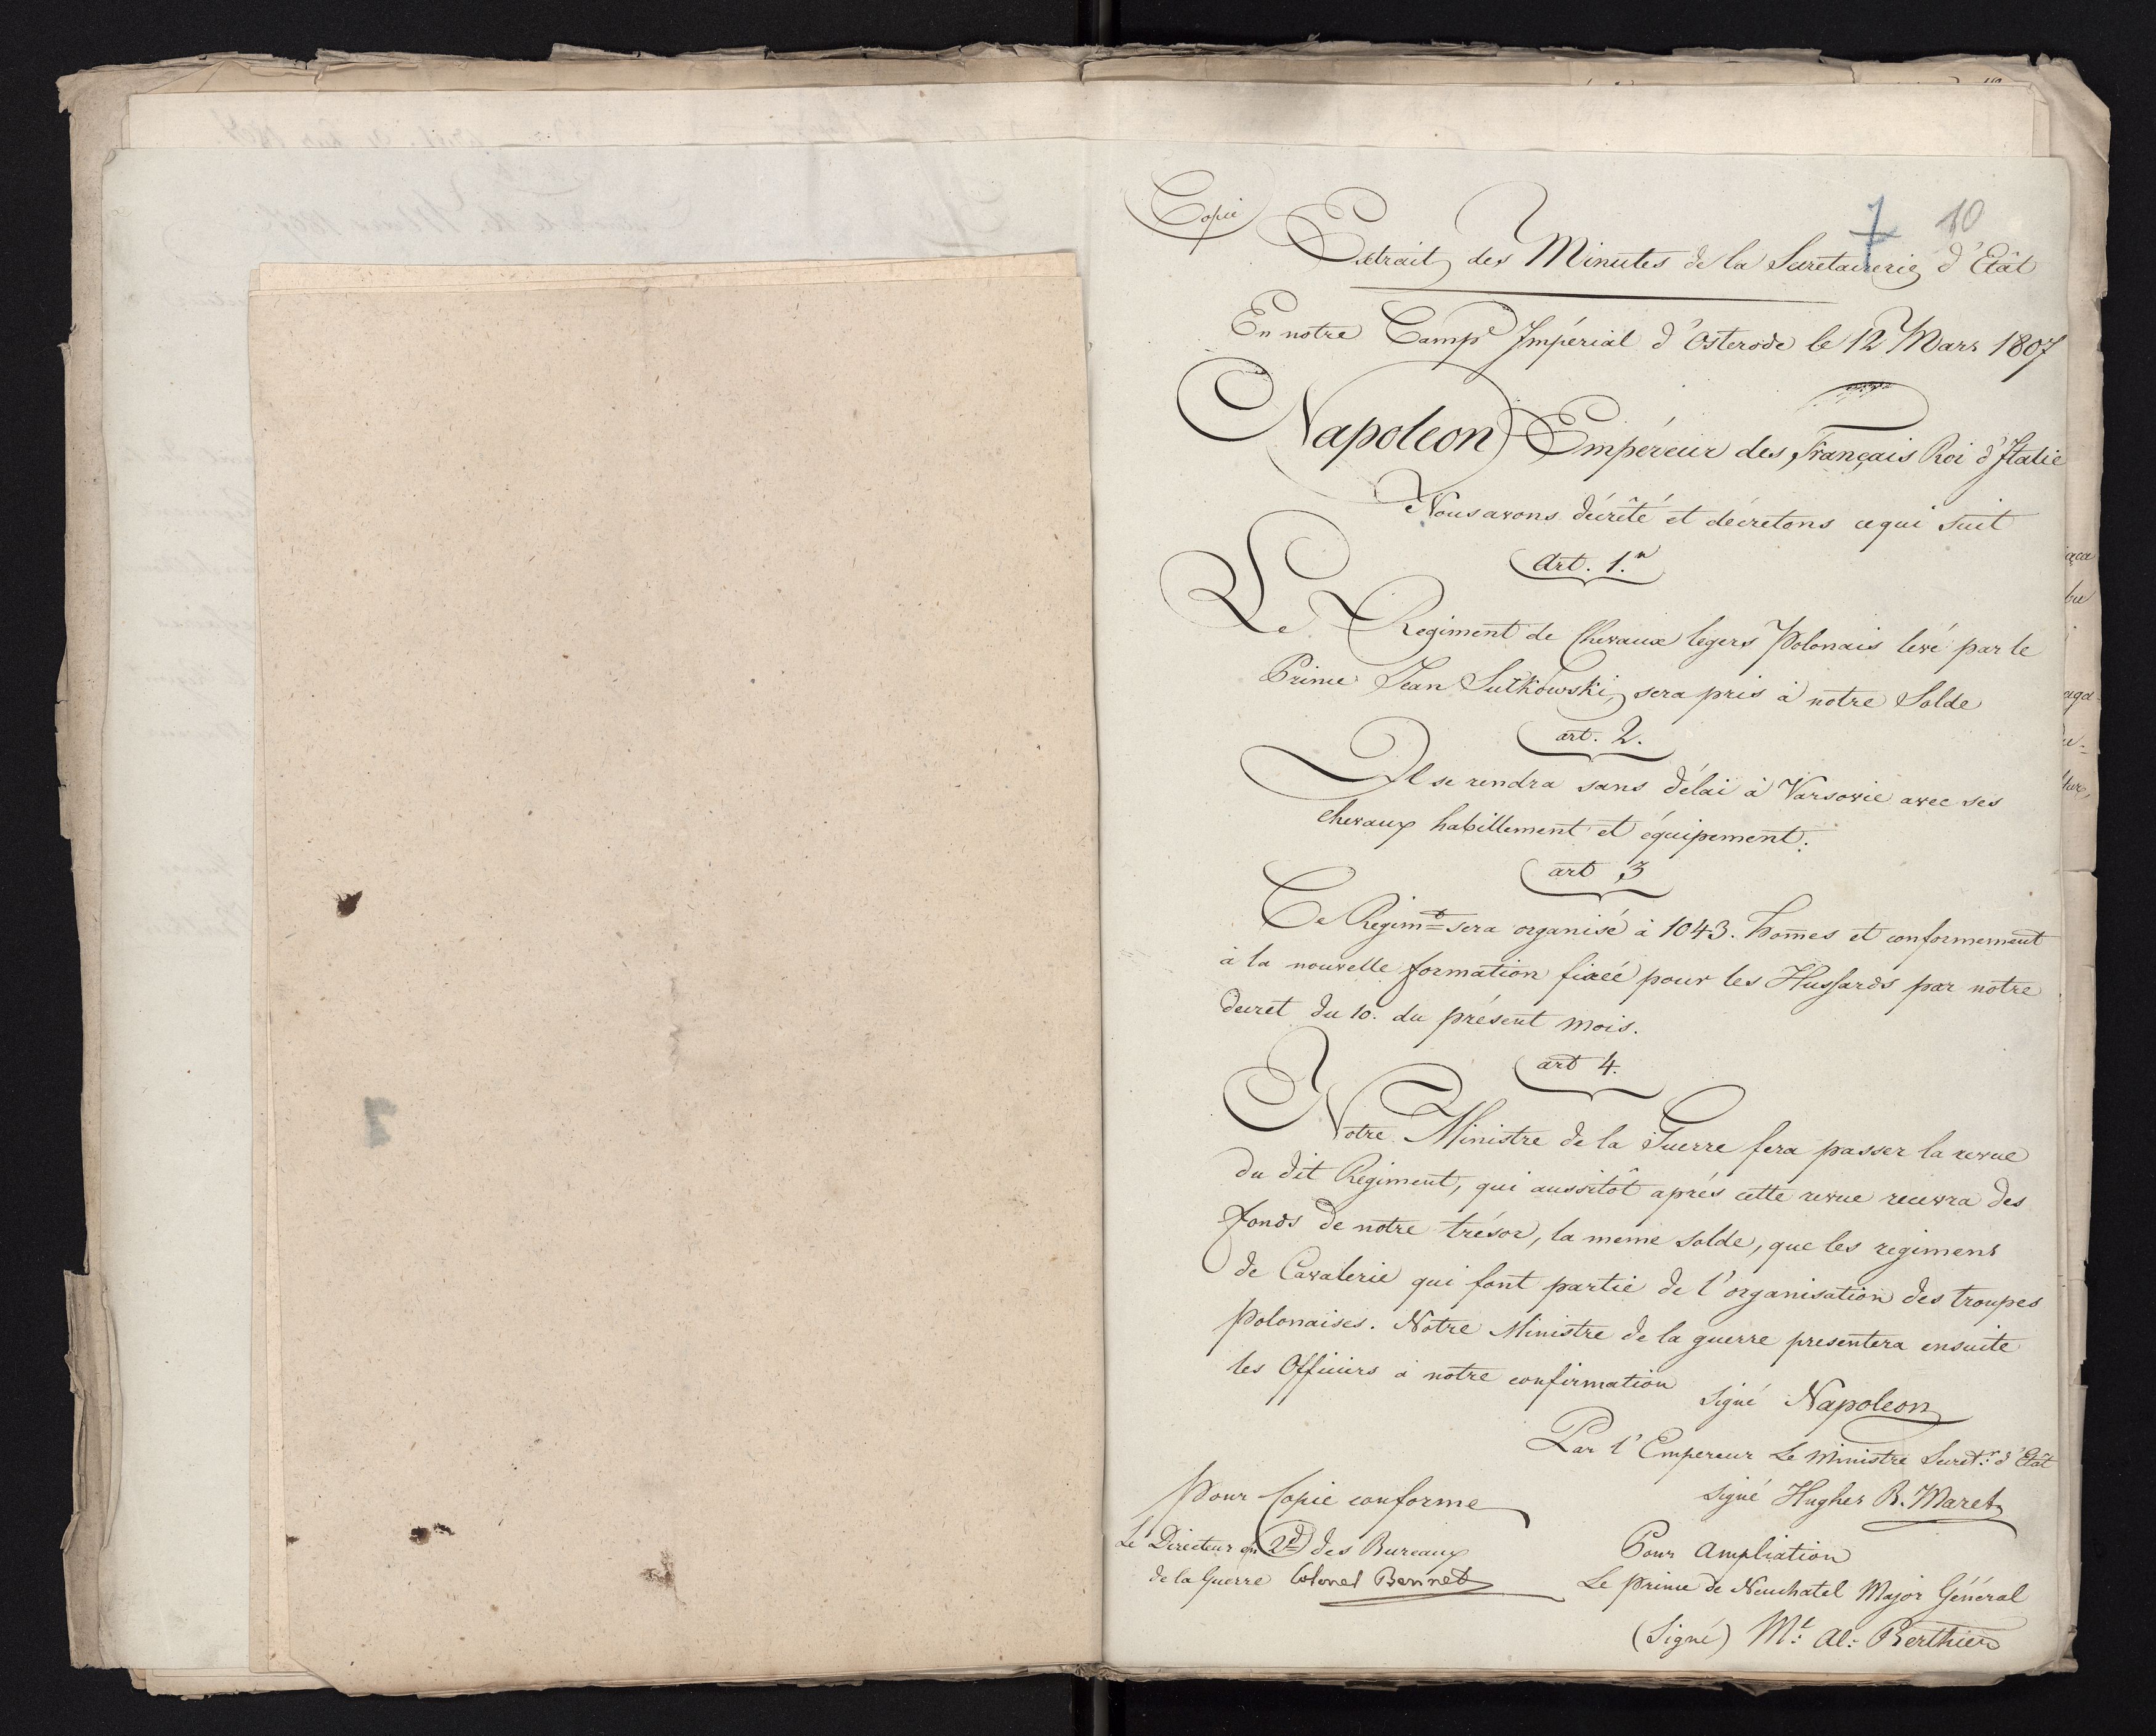 Copie
7 10
Extrait des Minutes de la Secretairerie d'Etât
En notre Camp Impérial d'Osterode le 12 Mars 1807
Napoleon Empéreur des Français Roi d'Italie
Nous avons décrêté et décretons ce qui suit
Art. 1.er
Le Regiment de Chevaux legers Polonais levé par le
Prince Jean Sulkowski, sera pris à notre Solde
art. 2.
Il se rendra sans délai à Varsovie avec ses
chevaux habillement et équipement.
art 3
Ce Regimt sera organisé à 1043. hom̄es et conformement
à la nouvelle formation fixeé pour les Hussards par notre
decret du 10. du présent mois.
art 4.
Notre Ministre de la Guerre fera passer la revue
du dit Regiment, qui aussitôt aprés cette revue recevra des
fonds de notre trésor, la meme solde, que les regimens
de Cavalerie qui font partie de l'organisation des troupes
Polonaises. Notre Ministre de la guerre presentera ensuite
les Officiers à notre confirmation
signé Napoleon
Par l'Empereur Le Ministre Secretr. d'Etât
signé Hughes B. Maret
Pour Copie conforme
Le Directeur en 2d des Bureaux
de la Guerre Colonel Bennet
Pour Ampliation
Le Prince de Neuchatel Major Général
(Signé) Ml: Al: Berthier